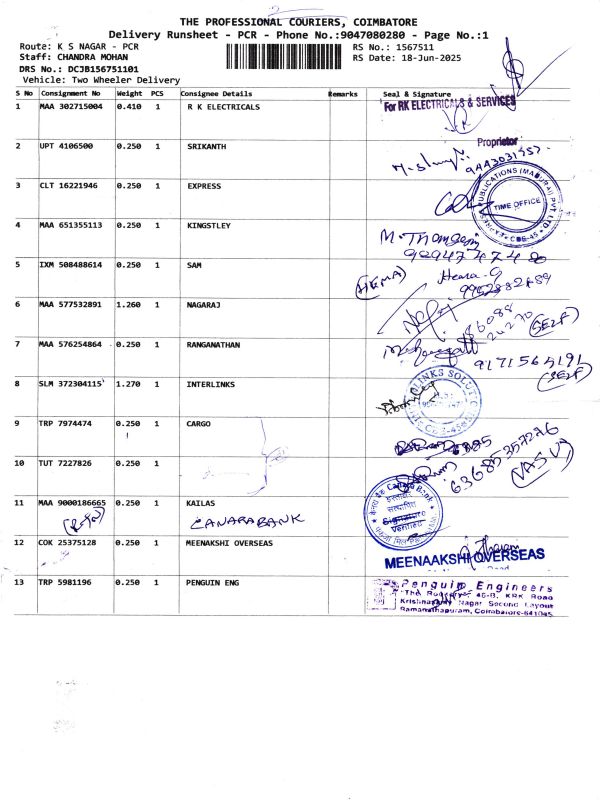 THE PROFESSIONAL COURIERS, COIMBATORE
Delivery Runsheet - PCR - Phone No.:9047080280 - Page No.:1
Route: K S NAGAR - PCR RS No.: 1567511
Staff: CHANDRA MOHAN RS Date: 18-Jun-2025
DRS No.: DCJB156751101
Vehicle: Two Wheeler Delivery
S No Consignment No Weight PCS Consignee Details Remarks Seal & Signature
1 MAA 302715004 0.410 1 R K ELECTRICALS For RK ELECTRICALS & SERVICES
Proprietor
2 UPT 4106500 0.250 1 SRIKANTH
3 CLT 16221946 0.250 1 EXPRESS TIME OFFICE
4 MAA 651355113 0.250 1 KINGSTLEY M. Thomson
9894747480
5 IXM 508488614 0.250 1 SAM (HEMA) Hema. G
9952882489
6 MAA 577532891 1.260 1 NAGARAJ (SELF)
7 MAA 576254864 0.250 1 RANGANATHAN 9171565191
(SELF)
8 SLM 372304115 1.270 1 INTERLINKS
9 TRP 7974474 0.250 1 CARGO
10 TUT 7227826 0.250 1 63685357276
(VASU)
11 MAA 9000186665 0.250 1 KAILAS Canara Bank
CANARABANK
12 COK 25375128 0.250 1 MEENAKSHI OVERSEAS MEENAAKSHI OVERSEAS
13 TRP 5981196 0.250 1 PENGUIN ENG Penguin Engineers
46-B, KRK Road
Nagar Second Layout
Ramanathapuram, Coimbatore-641045